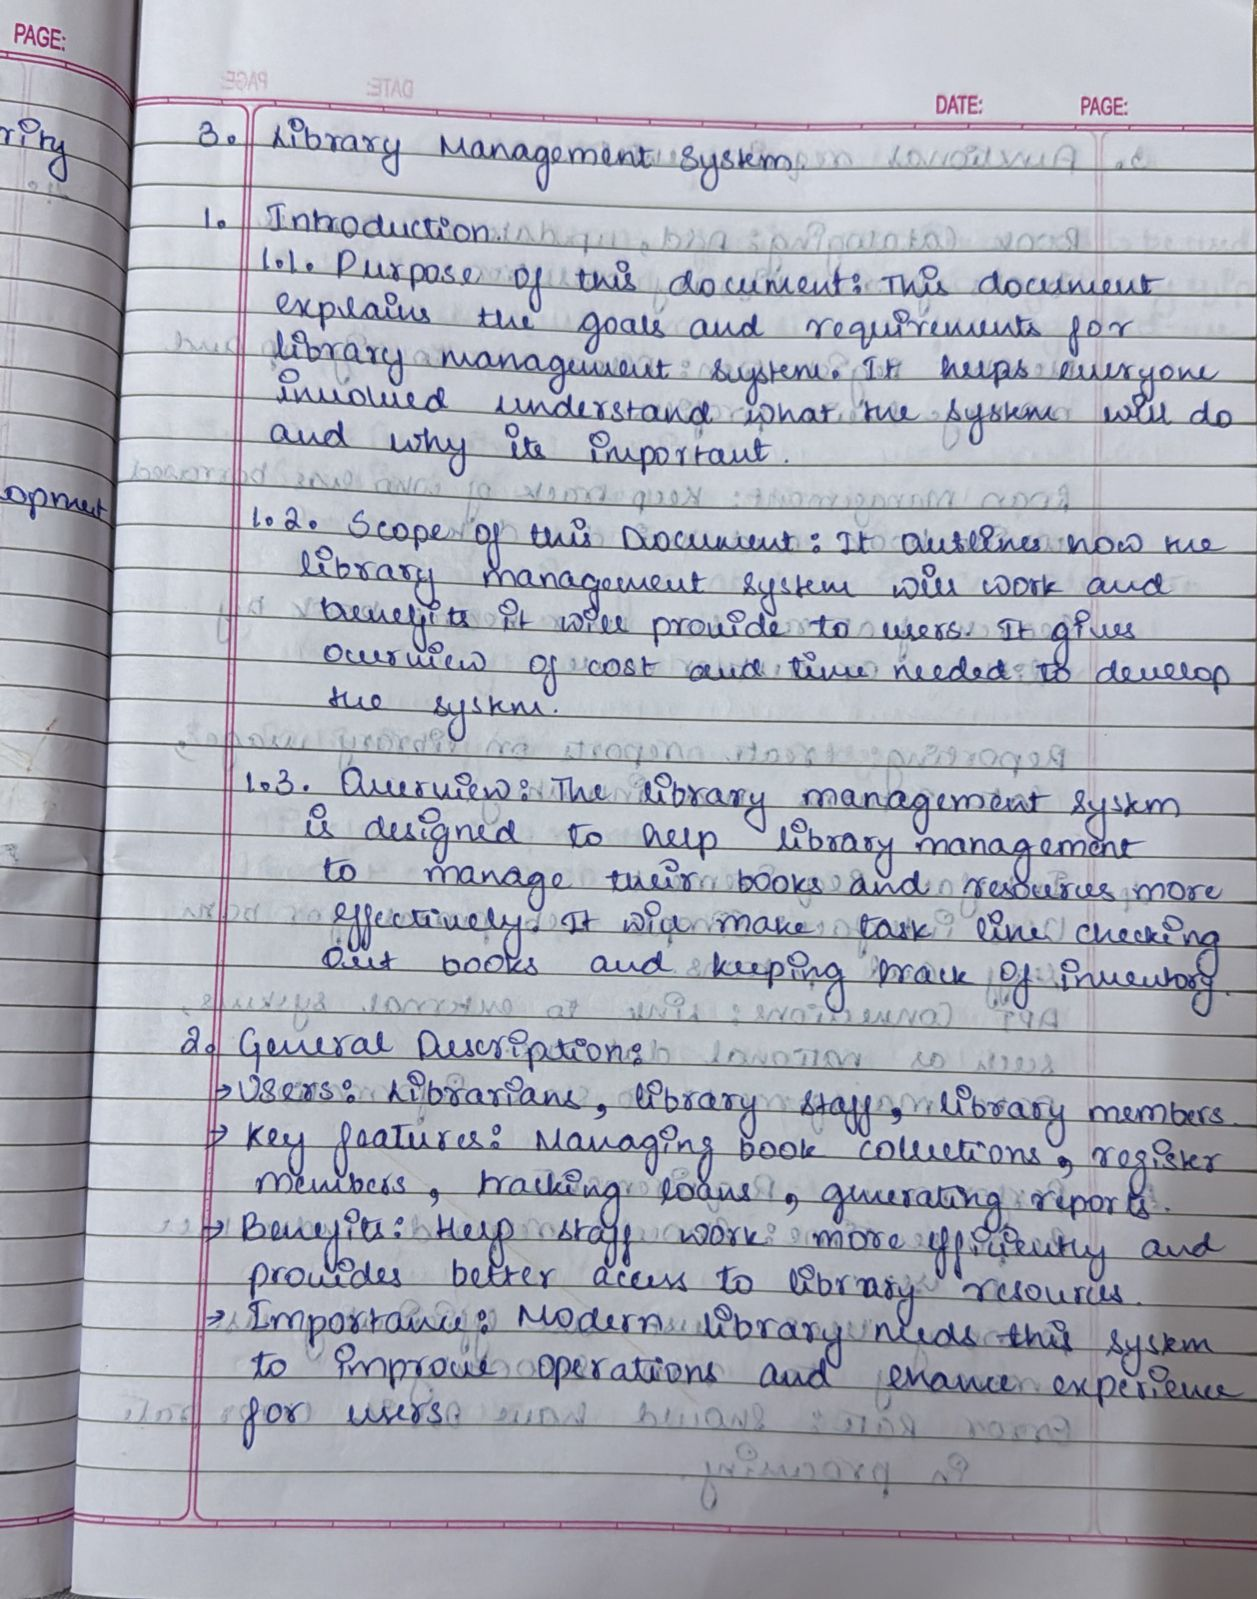 PAGE:
DATE: PAGE:
rity
3. Library Management System.
1. Introduction.
1.1. Purpose of this document: This document
explains the goals and requirements for
library management system. It helps everyone
involved understand what the system will do
and why its important.
opment
1.2. Scope of this Document: It outlines how the
library management system will work and
benefits it will provide to users. It gives
overview of cost and time needed to develop
the system.
1.3. Overview: The library management system
is designed to help library management
to manage their books and resources more
effectively. It will make task like checking
out books and keeping track of inventory.
2. General Description:
→ Users: Librarians, library staff, library members.
→ Key features: Managing book collections, register
members, tracking loans, generating reports.
→ Benefits: Help staff work more efficiently and
provides better access to library resources.
→ Importance: Modern library needs this system
to improve operations and enhance experience
for users